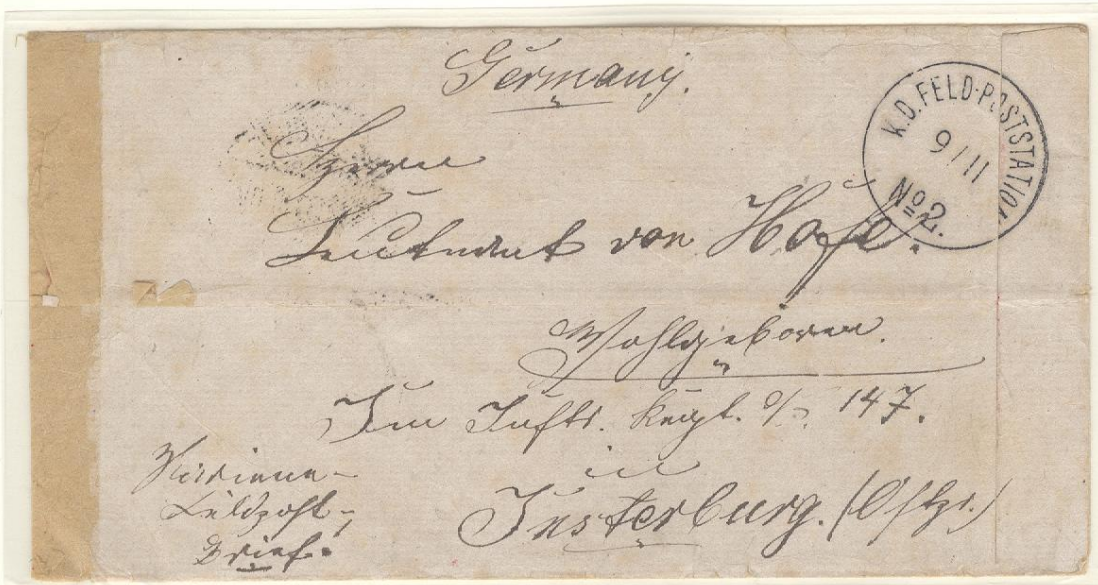 Germany.
K.D. FELD-POSTSTATION
9/11
No 2.
Herrn
Leutnant von
Wohlgeboren.
Im Inftr. Regt. 147.
in
Insterburg. (Ostpr.)
Marine-
Feldpost-
Brief.